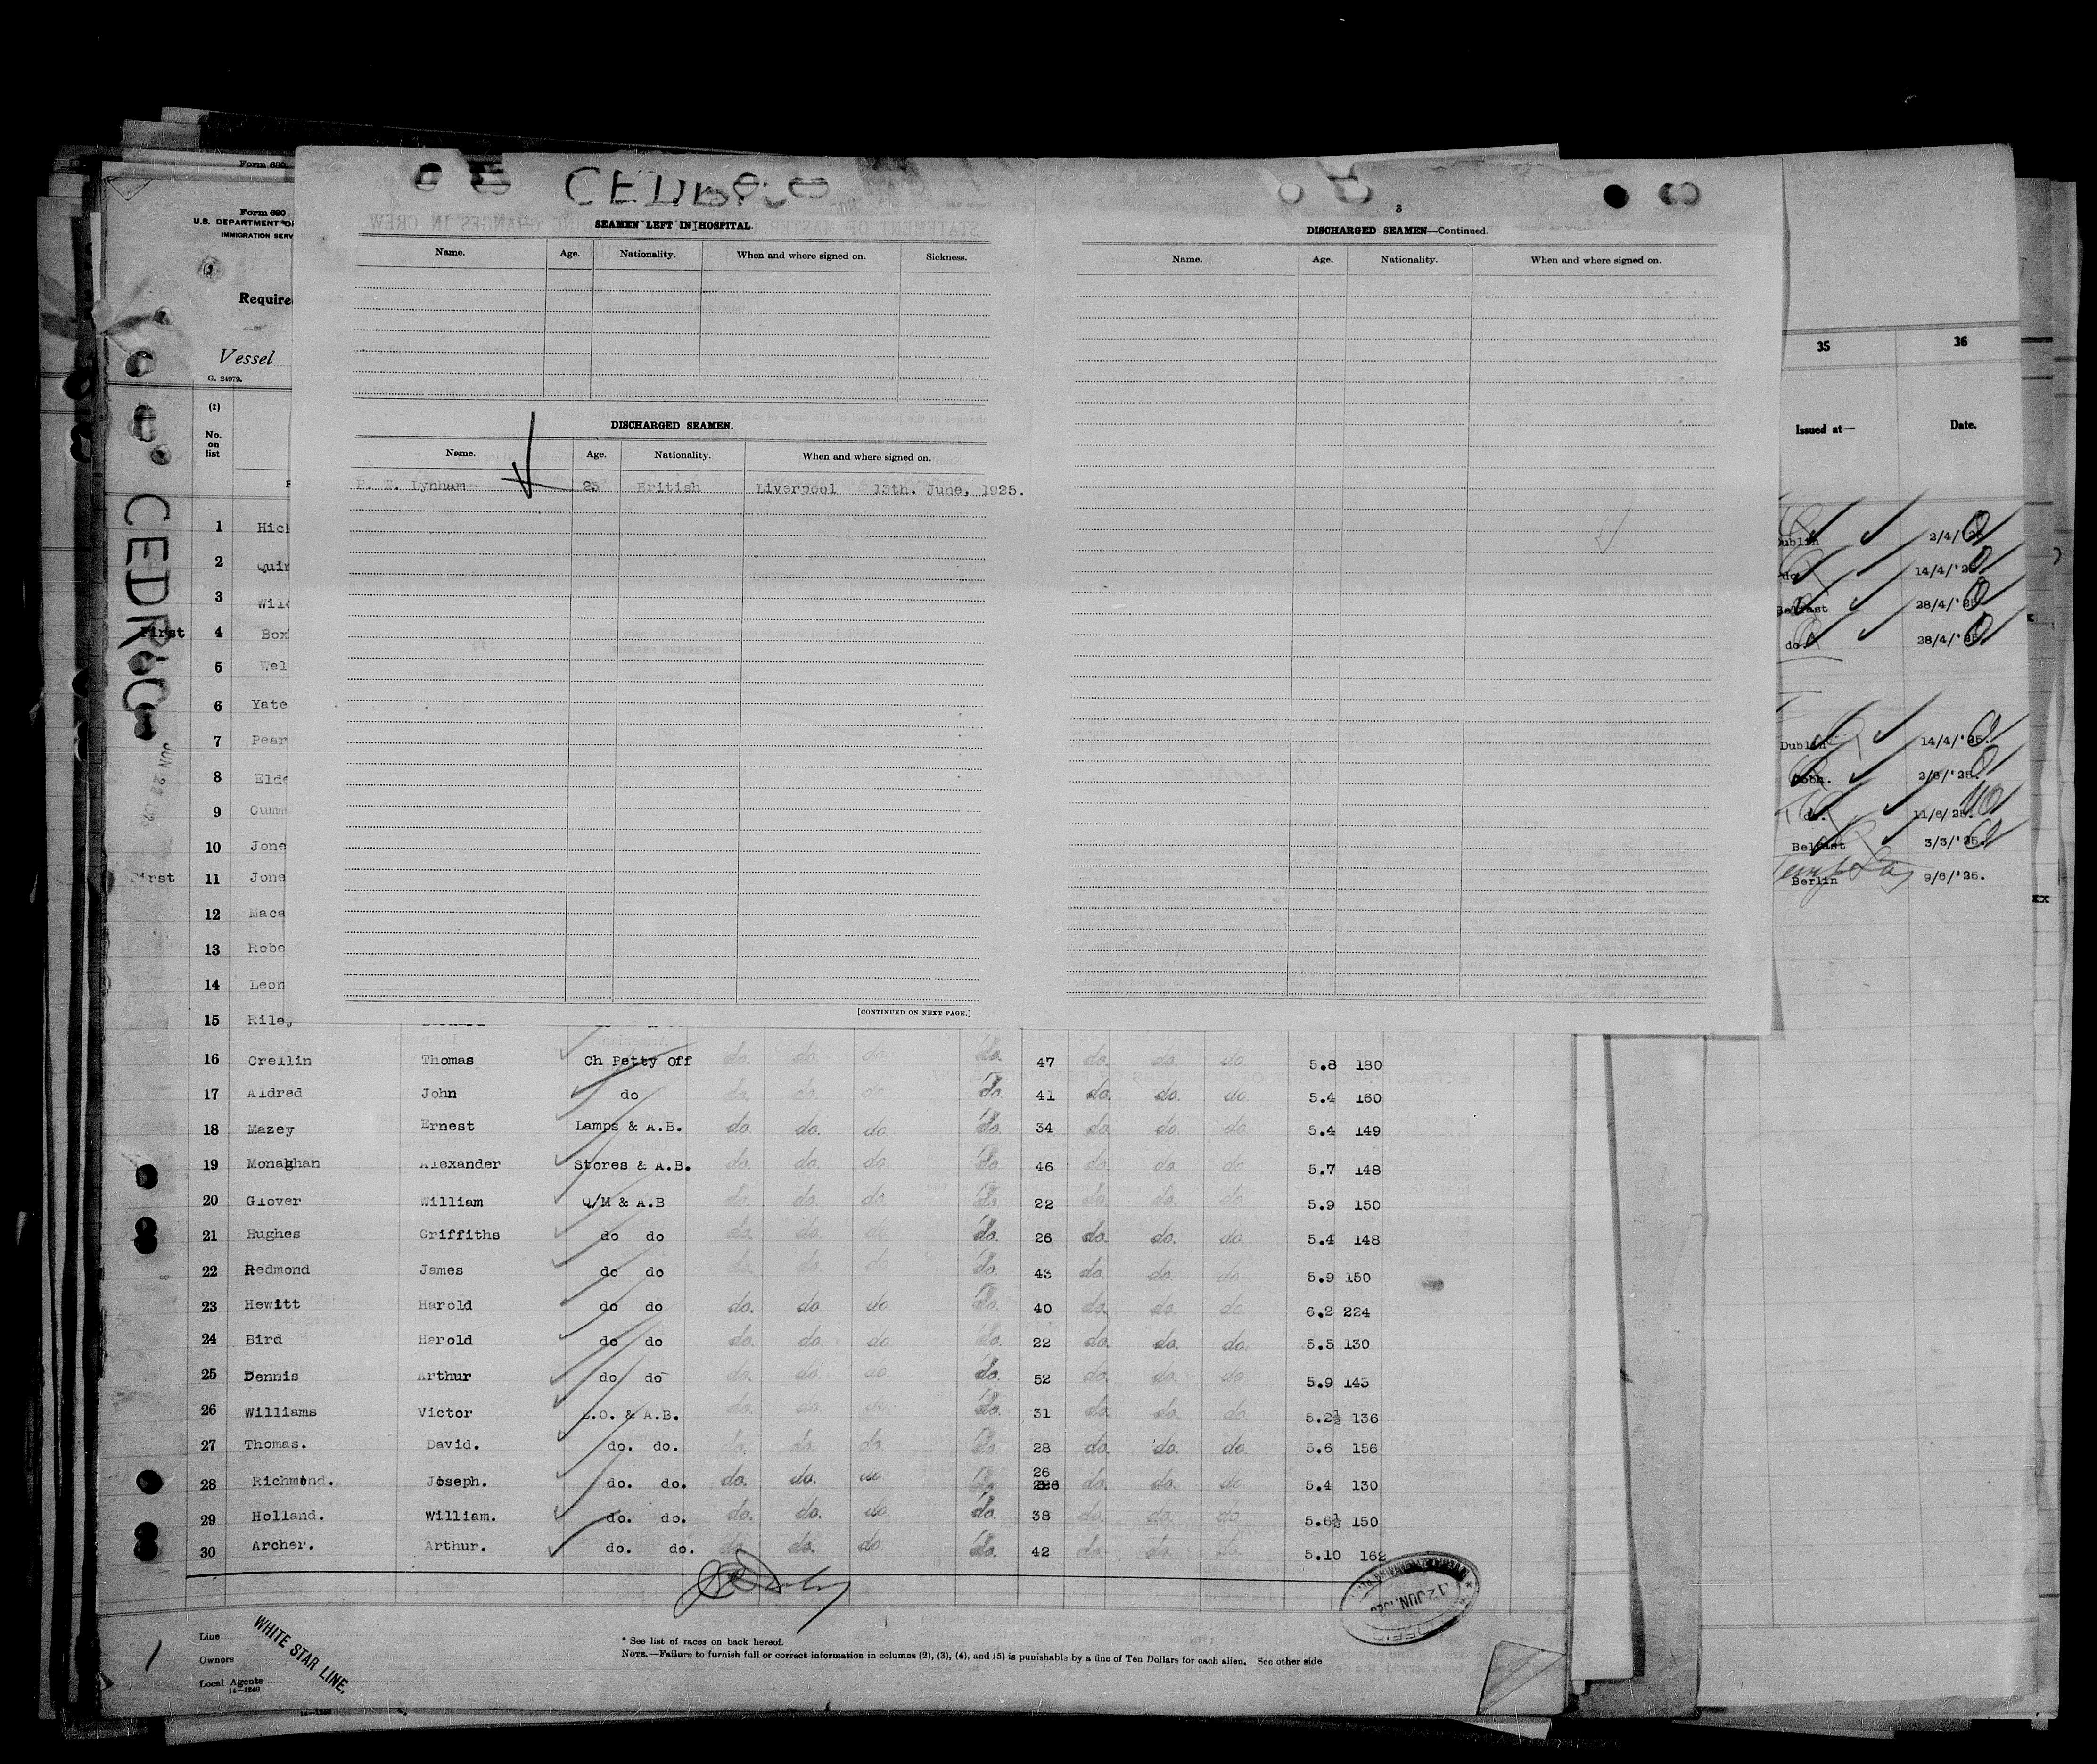 Form 680
Form 680
U.S. DEPARTMENT OF
IMMIGRATION SERV
Require
Vessel
G. 24979.
(1)
No.
on
list
CEDRIC
JUN 22 192
1 Hic
2 Quir
3 Wild
First 4 Box
5 Wel
6 Yate
7 Pear
8 Elde
9 Cumm
10 Jone
First 11 Jone
12 Maca
13 Robe
14 Leon
15 Riley
SEAMEN LEFT IN HOSPITAL.
Name. Age. Nationality. When and where signed on. Sickness.
DISCHARGED SEAMEN.
Name. Age. Nationality. When and where signed on.
Lynham 25 British Liverpool 13th. June, 1925.
[CONTINUED ON NEXT PAGE.]
3
DISCHARGED SEAMEN—Continued.
Name. Age. Nationality. When and where signed on.
35 36
Issued at— Date.
ublin 2/4/
do 14/4/'25
Belfast 28/4/'25
do. 28/4/'25
Dublin 14/4/'25.
Cobh. 2/6/'25.
do. 11/6/25.
Belfast 3/3/'25.
Berlin 9/6/'25.
16 Crellin Thomas Ch Petty Off do. do. do. do. 47 do. do. do. 5.8 180
17 Aldred John do do. do. do. do. 41 do. do. do. 5.4 160
18 Mazey Ernest Lamps & A.B. do. do. do. do. 34 do. do. do. 5.4 149
19 Monaghan Alexander Stores & A.B. do. do. do. do. 46 do. do. do. 5.7 148
20 Glover William Q/M & A.B do. do. do. do. 22 do. do. do. 5.9 150
21 Hughes Griffiths do do do. do. do. do. 26 do. do. do. 5.4 148
22 Redmond James do do do. do. do. do. 43 do. do. do. 5.9 150
23 Hewitt Harold do do do. do. do. do. 40 do. do. do. 6.2 224
24 Bird Harold do do do. do. do. do. 22 do. do. do. 5.5 130
25 Dennis Arthur do do do. do. do. do. 52 do. do. do. 5.9 143
26 Williams Victor L.O. & A.B. do. do. do. do. 31 do. do. do. 5.2½ 136
27 Thomas. David. do. do. do. do. do. do. 28 do. do. do. 5.6 156
28 Richmond. Joseph. do. do. do. do. do. do. 26 do. do. do. 5.4 130
29 Holland. William. do. do. do. do. do. do. 38 do. do. do. 5.6½ 150
30 Archer. Arthur. do. do. do. do. do. do. 42 do. do. do. 5.10 162
12 JUN. 192
Line
Owners
Local Agents
14—1240
WHITE STAR LINE.
* See list of races on back hereof.
NOTE.—Failure to furnish full or correct information in columns (2), (3), (4), and (5) is punishable by a fine of Ten Dollars for each alien. See other side